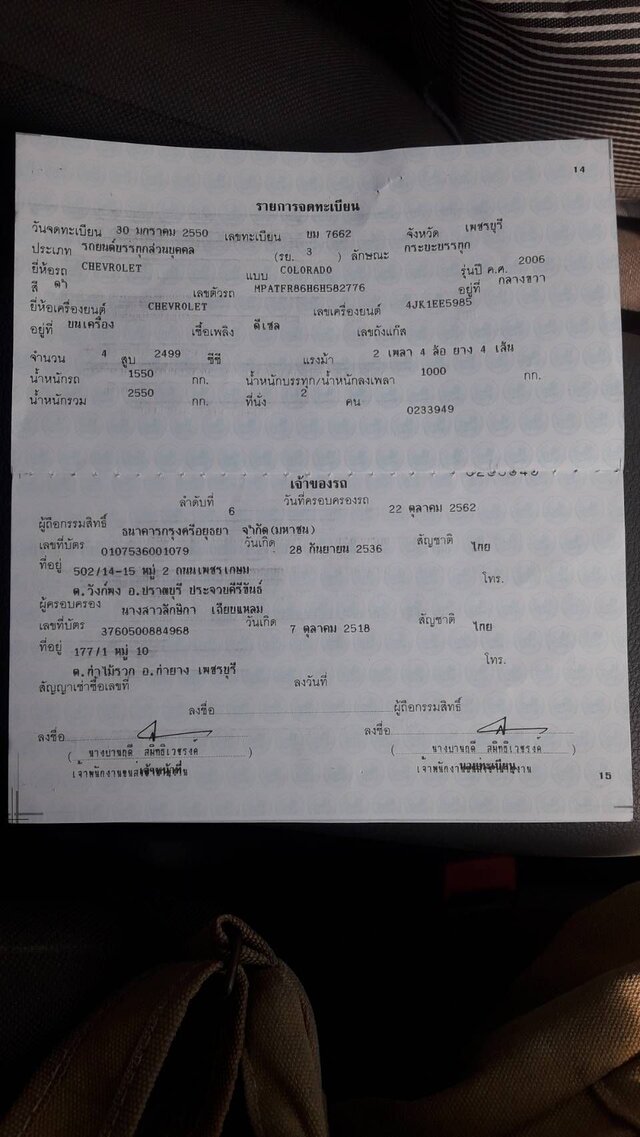 14
รายการจดทะเบียน
วันจดทะเบียน 30 มกราคม 2550 เลขทะเบียน บม 7662 จังหวัด เพชรบุรี
ประเภท รถยนต์บรรทุกส่วนบุคคล (รย. 3 ) ลักษณะ กระบะบรรทุก
ยี่ห้อรถ CHEVROLET แบบ COLORADO รุ่นปี ค.ศ. 2006
สี ดำ เลขตัวรถ MPATFR86H6H582776 อยู่ที่ กลางขวา
ยี่ห้อเครื่องยนต์ CHEVROLET เลขเครื่องยนต์ 4JK1EE5985
อยู่ที่ บนเครื่อง เชื้อเพลิง ดีเซล เลขถังแก๊ส
จำนวน 4 สูบ 2499 ซีซี แรงม้า 2 เพลา 4 ล้อ ยาง 4 เส้น
น้ำหนักรถ 1550 กก. น้ำหนักบรรทุก/น้ำหนักลงเพลา 1000 กก.
น้ำหนักรวม 2550 กก. ที่นั่ง 2 คน
0233949
เจ้าของรถ
ลำดับที่ 6 วันที่ครอบครองรถ 22 ตุลาคม 2562
ผู้ถือกรรมสิทธิ์ ธนาคารกรุงศรีอยุธยา จำกัด(มหาชน)
เลขที่บัตร 0107536001079 วันเกิด 28 กันยายน 2536 สัญชาติ ไทย
ที่อยู่ 502/14-15 หมู่ 2 ถนนเพชรเกษม โทร.
ต.วังก์พง อ.ปราณบุรี ประจวบคีรีขันธ์
ผู้ครอบครอง นางสาวลักษิกา เฉียบแหลม
เลขที่บัตร 3760500884968 วันเกิด 7 ตุลาคม 2518 สัญชาติ ไทย
ที่อยู่ 177/1 หมู่ 10 โทร.
ต.ท่าไม้รวก อ.ท่ายาง เพชรบุรี
สัญญาเช่าซื้อเลขที่ ลงวันที่
ลงชื่อ ผู้ถือกรรมสิทธิ์
ลงชื่อ ลงชื่อ
( นางบานฤดี ) ( นางบานฤดี )
เจ้าหน้าที่ นายทะเบียน
15